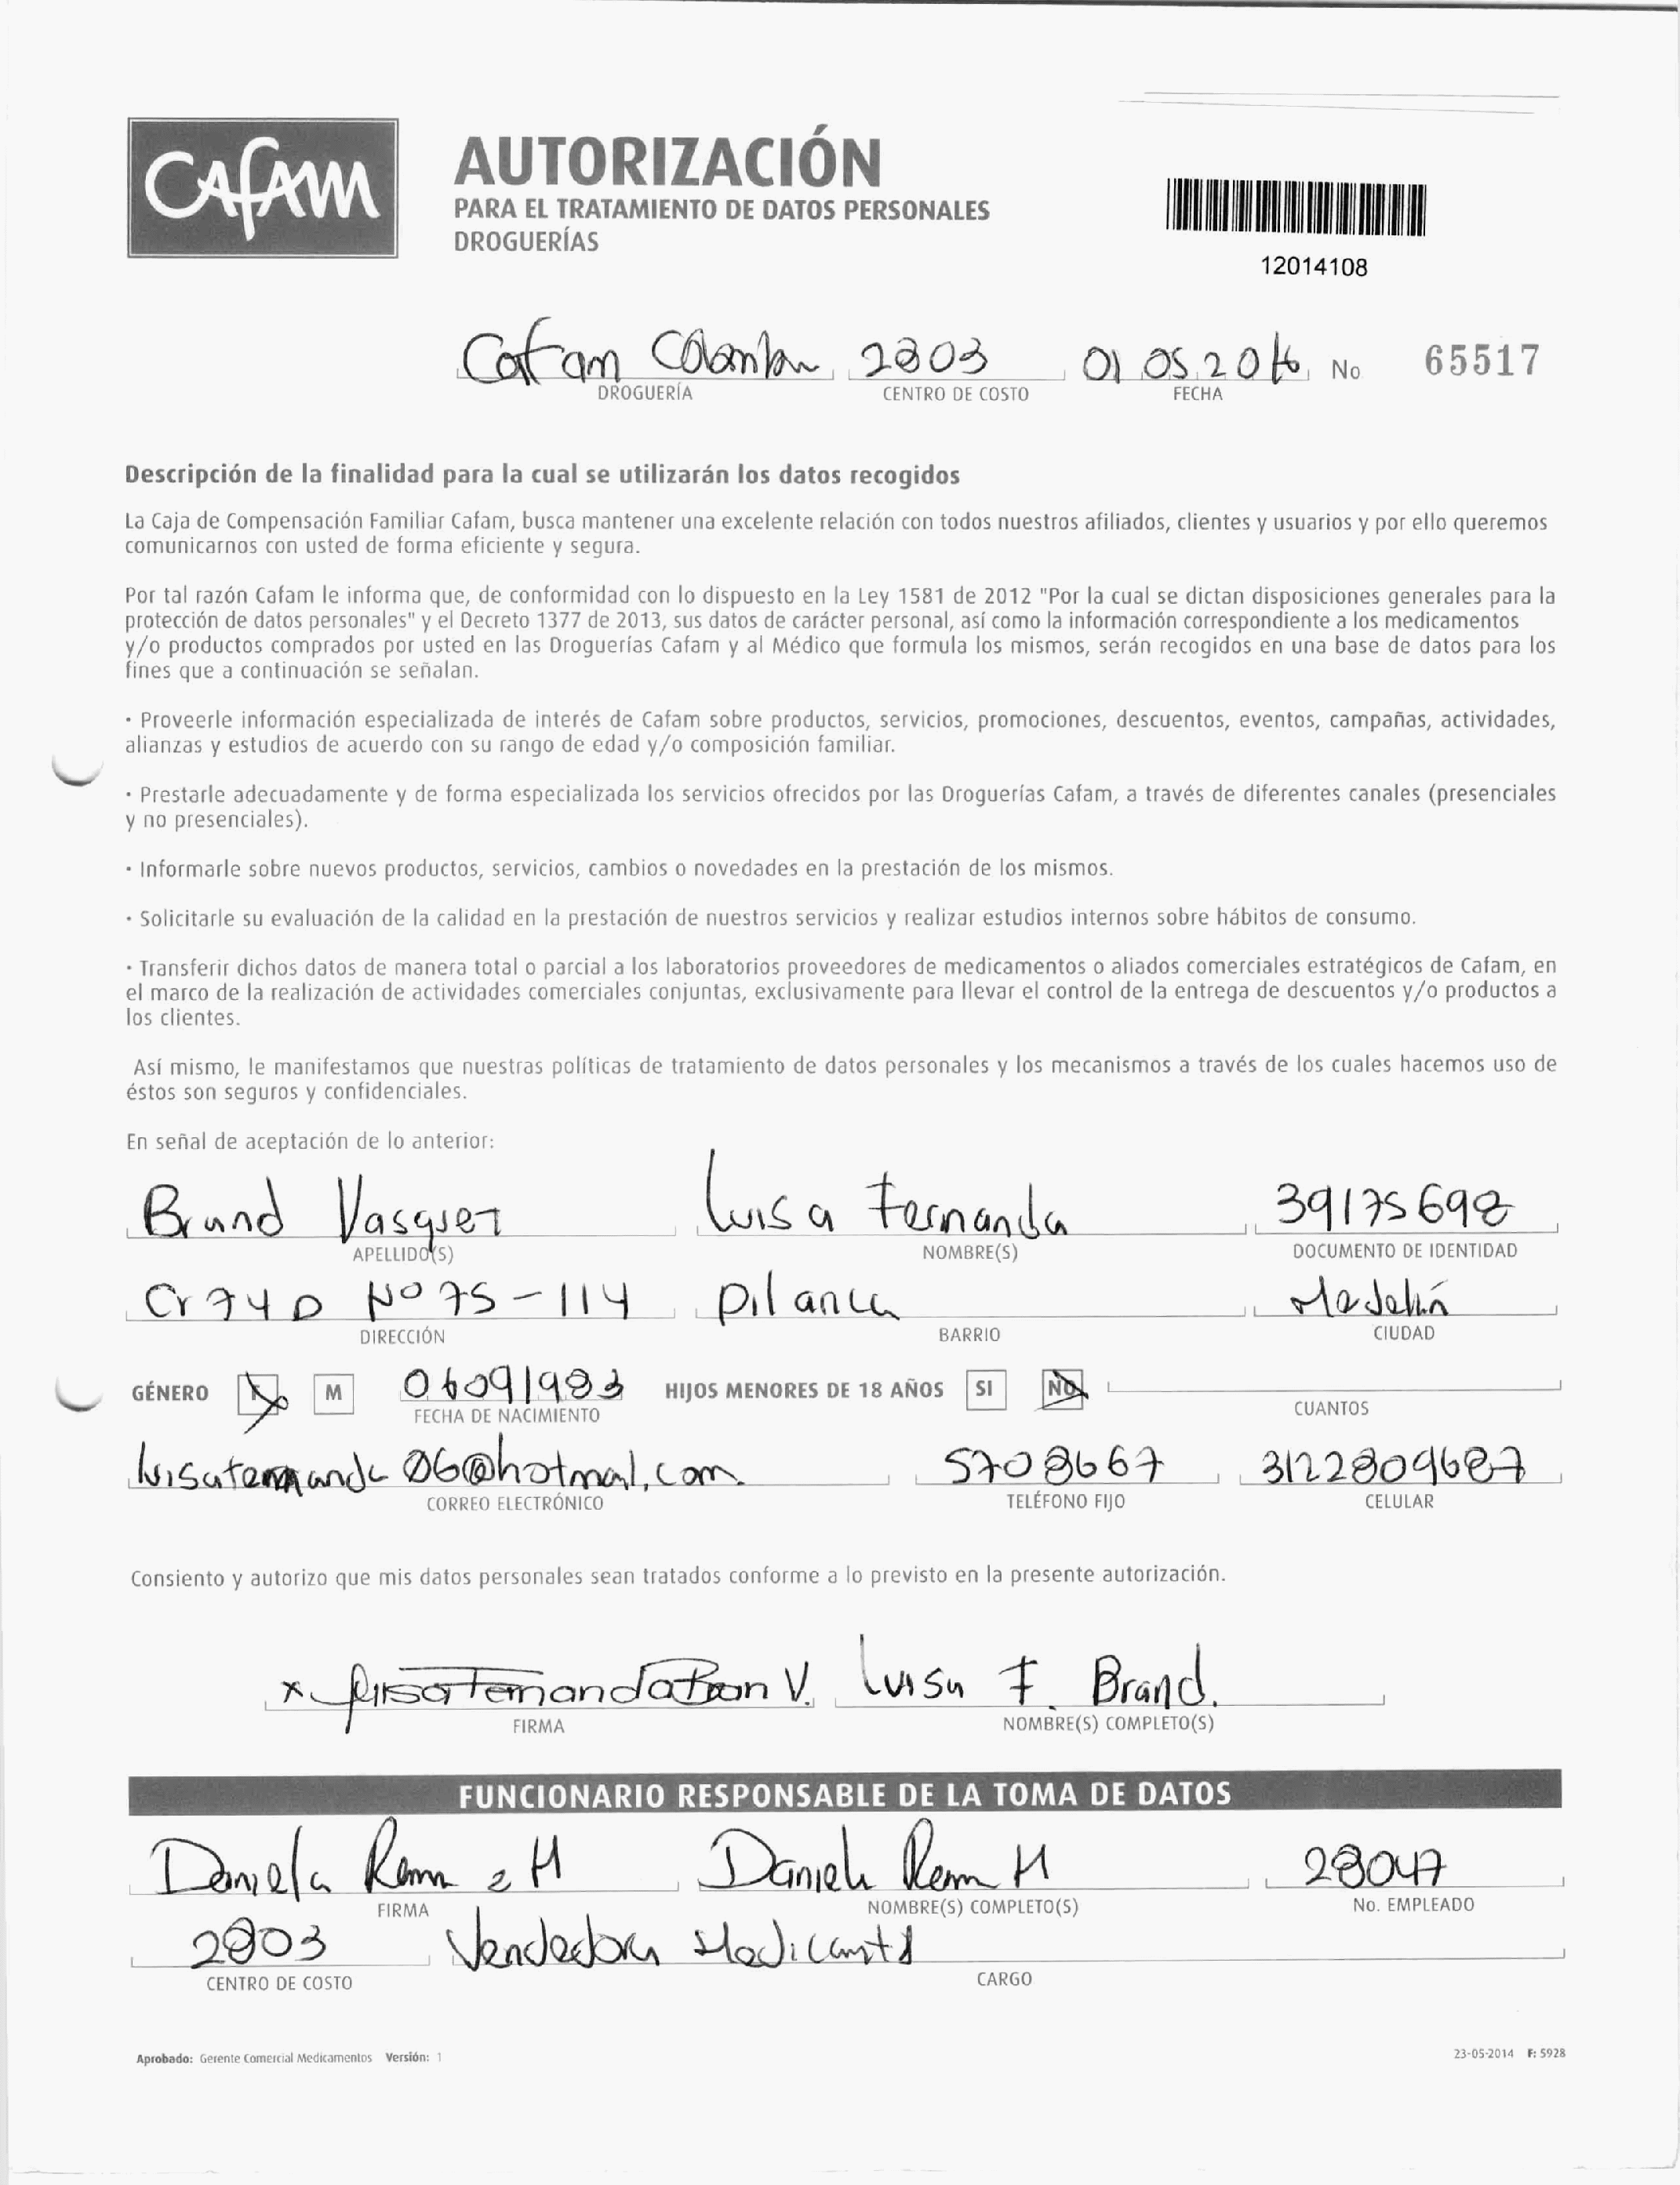 CAFAM
AUTORIZACIÓN
PARA EL TRATAMIENTO DE DATOS PERSONALES
DROGUERÍAS
12014108
Cafam 2803 01 05 2016 No 65517
DROGUERÍA CENTRO DE COSTO FECHA
Descripción de la finalidad para la cual se utilizarán los datos recogidos
La Caja de Compensación Familiar Cafam, busca mantener una excelente relación con todos nuestros afiliados, clientes y usuarios y por ello queremos
comunicarnos con usted de forma eficiente y segura.
Por tal razón Cafam le informa que, de conformidad con lo dispuesto en la Ley 1581 de 2012 "Por la cual se dictan disposiciones generales para la
protección de datos personales" y el Decreto 1377 de 2013, sus datos de carácter personal, así como la información correspondiente a los medicamentos
y/o productos comprados por usted en las Droguerías Cafam y al Médico que formula los mismos, serán recogidos en una base de datos para los
fines que a continuación se señalan.
· Proveerle información especializada de interés de Cafam sobre productos, servicios, promociones, descuentos, eventos, campañas, actividades,
alianzas y estudios de acuerdo con su rango de edad y/o composición familiar.
· Prestarle adecuadamente y de forma especializada los servicios ofrecidos por las Droguerías Cafam, a través de diferentes canales (presenciales
y no presenciales).
· Informarle sobre nuevos productos, servicios, cambios o novedades en la prestación de los mismos.
· Solicitarle su evaluación de la calidad en la prestación de nuestros servicios y realizar estudios internos sobre hábitos de consumo.
· Transferir dichos datos de manera total o parcial a los laboratorios proveedores de medicamentos o aliados comerciales estratégicos de Cafam, en
el marco de la realización de actividades comerciales conjuntas, exclusivamente para llevar el control de la entrega de descuentos y/o productos a
los clientes.
Así mismo, le manifestamos que nuestras políticas de tratamiento de datos personales y los mecanismos a través de los cuales hacemos uso de
éstos son seguros y confidenciales.
En señal de aceptación de lo anterior:
Brand Vasquez Luisa Fernanda 39175698
APELLIDO(S) NOMBRE(S) DOCUMENTO DE IDENTIDAD
Cr 74 D No 75-114 pilarica Medellín
DIRECCIÓN BARRIO CIUDAD
GÉNERO M 06091983 HIJOS MENORES DE 18 AÑOS SI NO
FECHA DE NACIMIENTO CUANTOS
luisafernanda06@hotmail.com 5708667 3122809687
CORREO ELECTRÓNICO TELÉFONO FIJO CELULAR
Consiento y autorizo que mis datos personales sean tratados conforme a lo previsto en la presente autorización.
x Luisa Fernanda Bran V. Luisa F. Brand.
FIRMA NOMBRE(S) COMPLETO(S)
FUNCIONARIO RESPONSABLE DE LA TOMA DE DATOS
Daniela H Daniela H 28047
FIRMA NOMBRE(S) COMPLETO(S) No. EMPLEADO
2803 Vendedora
CENTRO DE COSTO CARGO
Aprobado: Gerente Comercial Medicamentos Versión: 1 23-05-2014 F: 5928